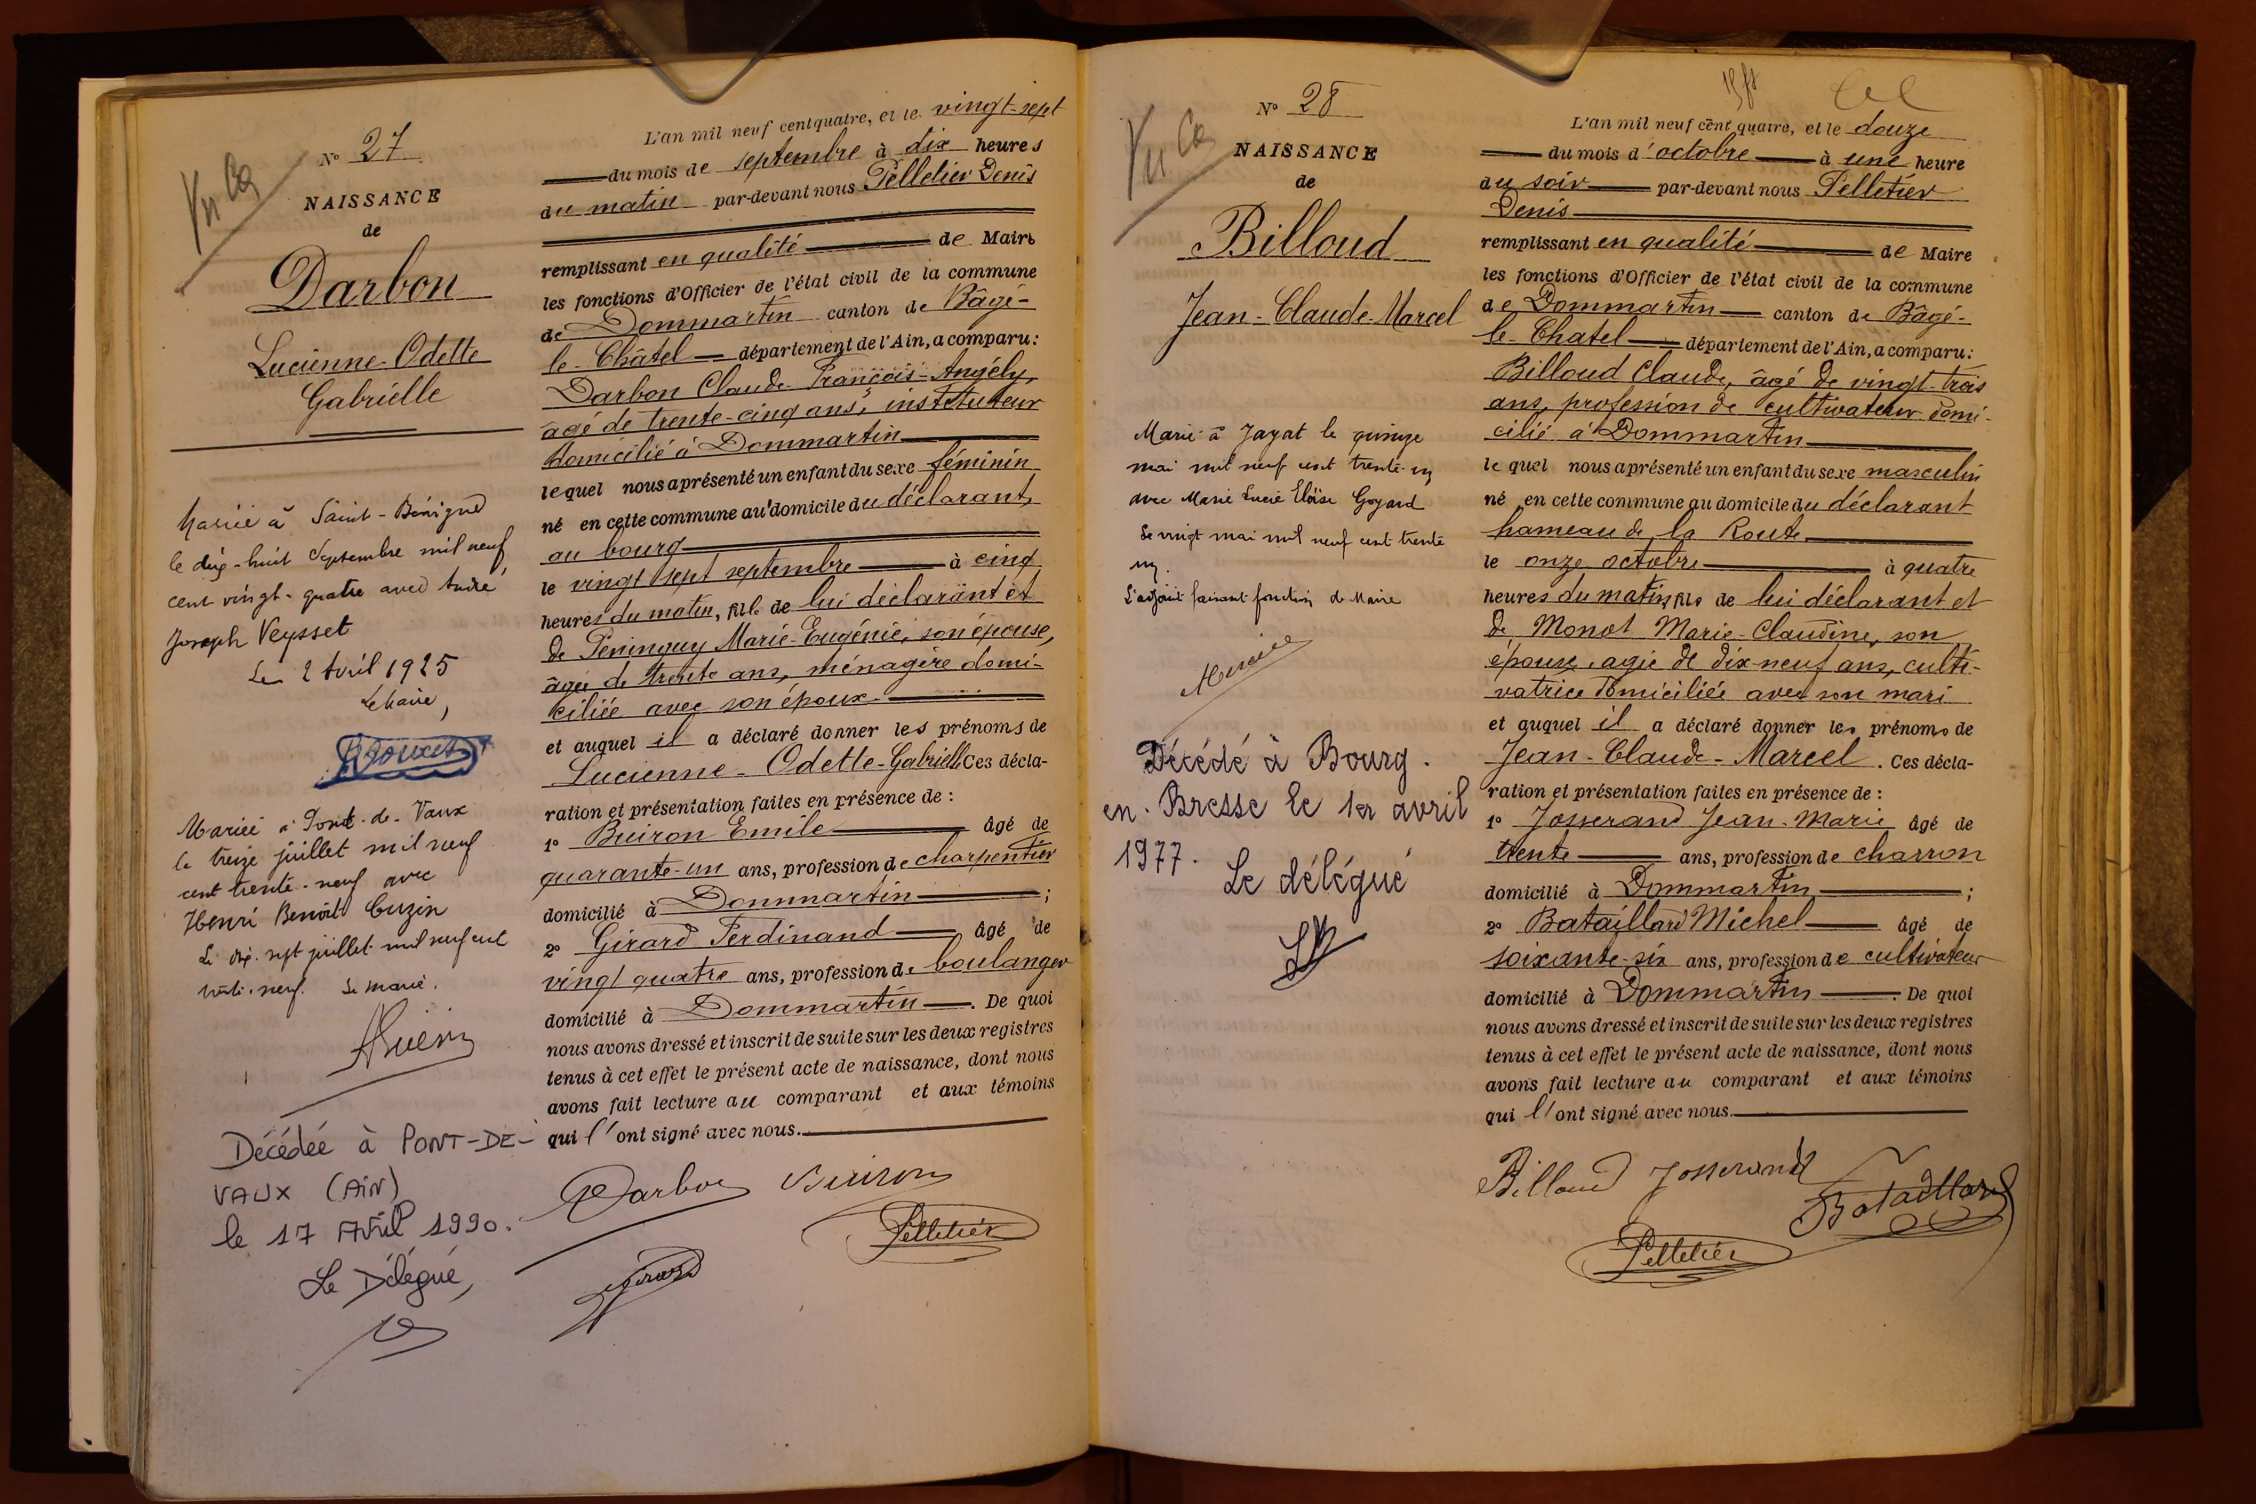 N° 27
NAISSANCE
de
Darbon
Lucienne-Odette
Gabrielle
Mariée à Saint-Bénigne
le dix-huit Septembre mil neuf
cent vingt-quatre avec André,
Joseph Veysset
Le 2 Avril 1925
Le Maire,
Mariée à Pont-de-Vaux
le treize juillet mil neuf
cent trente-neuf avec
Henri Benoît Cuzin
Le dix-sept juillet mil neuf cent
trente-neuf. Le maire.
Décédée à PONT-DE-
VAUX (Ain)
le 17 Avril 1990.
Le Délégué,
L'an mil neuf cent quatre, et le vingt-sept
du mois de septembre à dix heures
du matin par-devant nous Pelletier Denis
remplissant en qualité de Maire
les fonctions d'Officier de l'état civil de la commune
de Dommartin canton de Bâgé-
le-Châtel département de l'Ain, a comparu:
Darbon Claude-François-Angély,
âgé de trente-cinq ans, instituteur
domicilié à Dommartin
lequel nous a présenté un enfant du sexe féminin
né en cette commune au domicile du déclarant,
au bourg
le vingt sept septembre à cinq
heures du matin, fils de lui déclarant et
de Péninguy Marie-Eugénie, son épouse,
âgée de trente ans, ménagère domi-
ciliée avec son époux
et auquel il a déclaré donner les prénoms de
Lucienne-Odette-Gabrielle Ces décla-
ration et présentation faites en présence de :
1° Buiron Emile âgé de
quarante-un ans, profession de charpentier
domicilié à Dommartin ;
2° Girard Ferdinand âgé de
vingt quatre ans, profession de boulanger
domicilié à Dommartin. De quoi
nous avons dressé et inscrit de suite sur les deux registres
tenus à cet effet le présent acte de naissance, dont nous
avons fait lecture au comparant et aux témoins
qui l'ont signé avec nous.
Darbon Buiron
Girard Pelletier
N° 28
NAISSANCE
de
Billoud
Jean-Claude-Marcel
Marié à Jayat le quinze
mai mil neuf cent trente-un
avec Marie Lucie Eloïse Goyard
Le vingt mai mil neuf cent trente
un.
L'adjoint faisant fonction de Maire
Mercier
Décédé à Bourg.
en-Bresse le 1er avril
1977.
Le délégué
L'an mil neuf cent quatre, et le douze
du mois d'octobre à une heure
du soir par-devant nous Pelletier
Denis
remplissant en qualité de Maire
les fonctions d'Officier de l'état civil de la commune
de Dommartin canton de Bâgé-
le-Chatel département de l'Ain, a comparu:
Billoud Claude, âgé de vingt-trois
ans, profession de cultivateur domi-
cilié à Dommartin
lequel nous a présenté un enfant du sexe masculin
né en cette commune au domicile du déclarant
hameau de la Route
le onze octobre à quatre
heures du matin, fils de lui déclarant et
de Monot Marie-Claudine, son
épouse, agée de dix-neuf ans, culti-
vatrice domiciliée avec son mari
et auquel il a déclaré donner les prénoms de
Jean-Claude-Marcel. Ces décla-
ration et présentation faites en présence de :
1° Josserand Jean-Marie âgé de
trente ans, profession de charron
domicilié à Dommartin ;
2° Bataillard Michel âgé de
soixante-six ans, profession de cultivateur
domicilié à Dommartin. De quoi
nous avons dressé et inscrit de suite sur les deux registres
tenus à cet effet le présent acte de naissance, dont nous
avons fait lecture au comparant et aux témoins
qui l'ont signé avec nous.
Billoud Josserand Bataillard
Pelletier